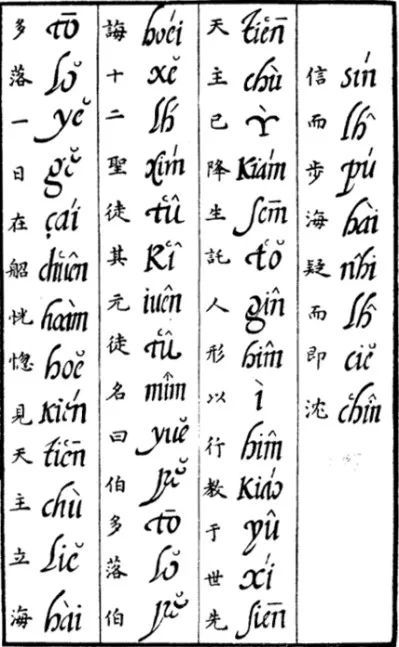 信 sín 而 lĥ 步 pú 海 hài 疑 nhî 而 lĥ 即 ciĕ 沈 c̔hîn
天 t̔iēn 主 chù 已 ỳ 降 kiám 生 sēm 託 t̔ŏ 人 gîn 形 hîm 以 ì 行 hîm 教 kiáo 于 yû 世 xí 先 siēn
誨 hoéi 十 xĕ 二 lh́ 聖 xím 徒 t̔û 其 k̔î 元 iuên 徒 t̔û 名 mîm 曰 yuĕ 伯 pĕ 多 tō 落 lŏ 伯 pĕ
多 tō 落 lŏ 一 yĕ 日 gĕ 在 çái 船 c̔huên 恍 hoàm 惚 hoĕ 見 kién 天 t̔iēn 主 chù 立 liĕ 海 hài